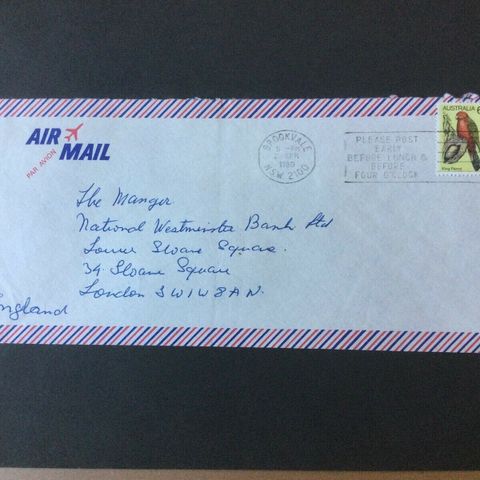 AIR MAIL
PAR AVION
BROOKVALE
1980
NSW 2100
PLEASE POST
EARLY
BEFORE LUNCH &
BEFORE
FOUR O'CLOCK
AUSTRALIA
King Parrot
The Manger
National Westminster Bank Ltd
Lower Sloane Square.
34 Sloane Square
London SW1W8AN.
England